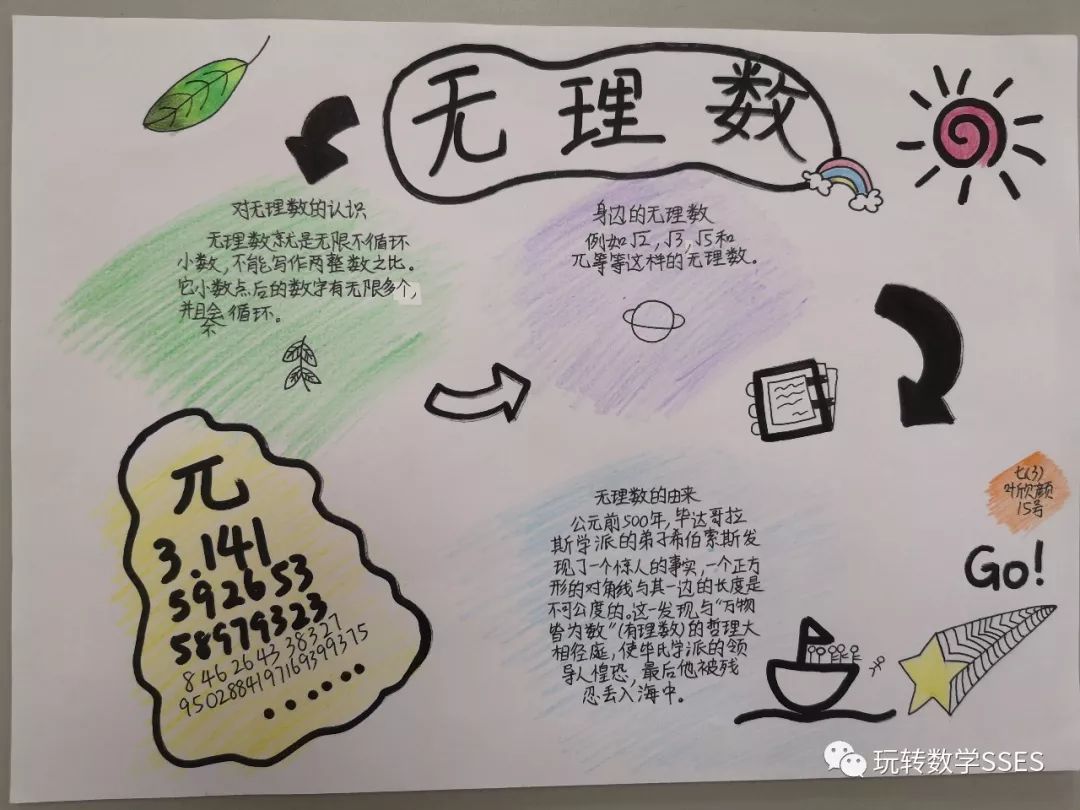 无理数
对无理数的认识
无理数京就是无限不循环
小数，不能写作两整数之比。
它小数点后的数字有无限多个，
并且会循环。
不
身边的无理数
例如√2，√3，√5和
π等等这样的无理数。
π
3.141
592653
58979323
846 2643 38327
95028841971169399375
......
无理数的由来
公元前500年，毕达哥拉
斯学派的弟子希伯索斯发
现了一个惊人的事实，一个正方
形的对角线与其一边的长度是
不可公度的。这一发现与“万物
皆为数”(有理数)的哲理大
相径庭，使毕氏学派的领
导人惶恐，最后他被残
忍丢入海中。
七(3)
叶欣颜
15号
Go!
玩转数学SSES